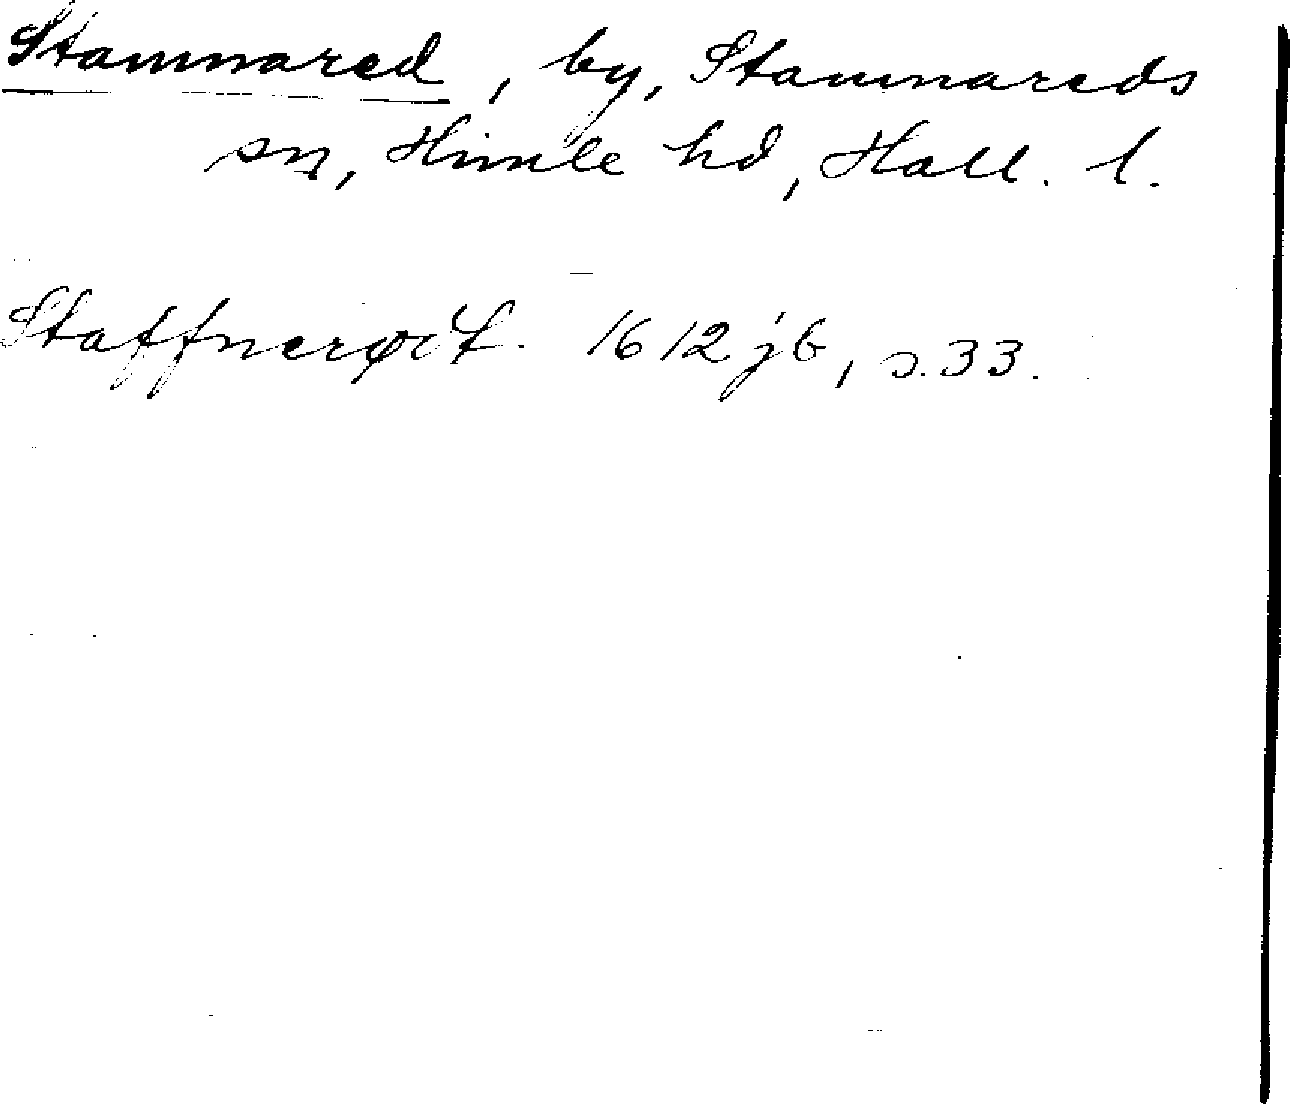 Stamnared, by, Stamnareds
sn, Himle hd, Hall. l.
Staffnerødt. 1612 jb, s. 33.